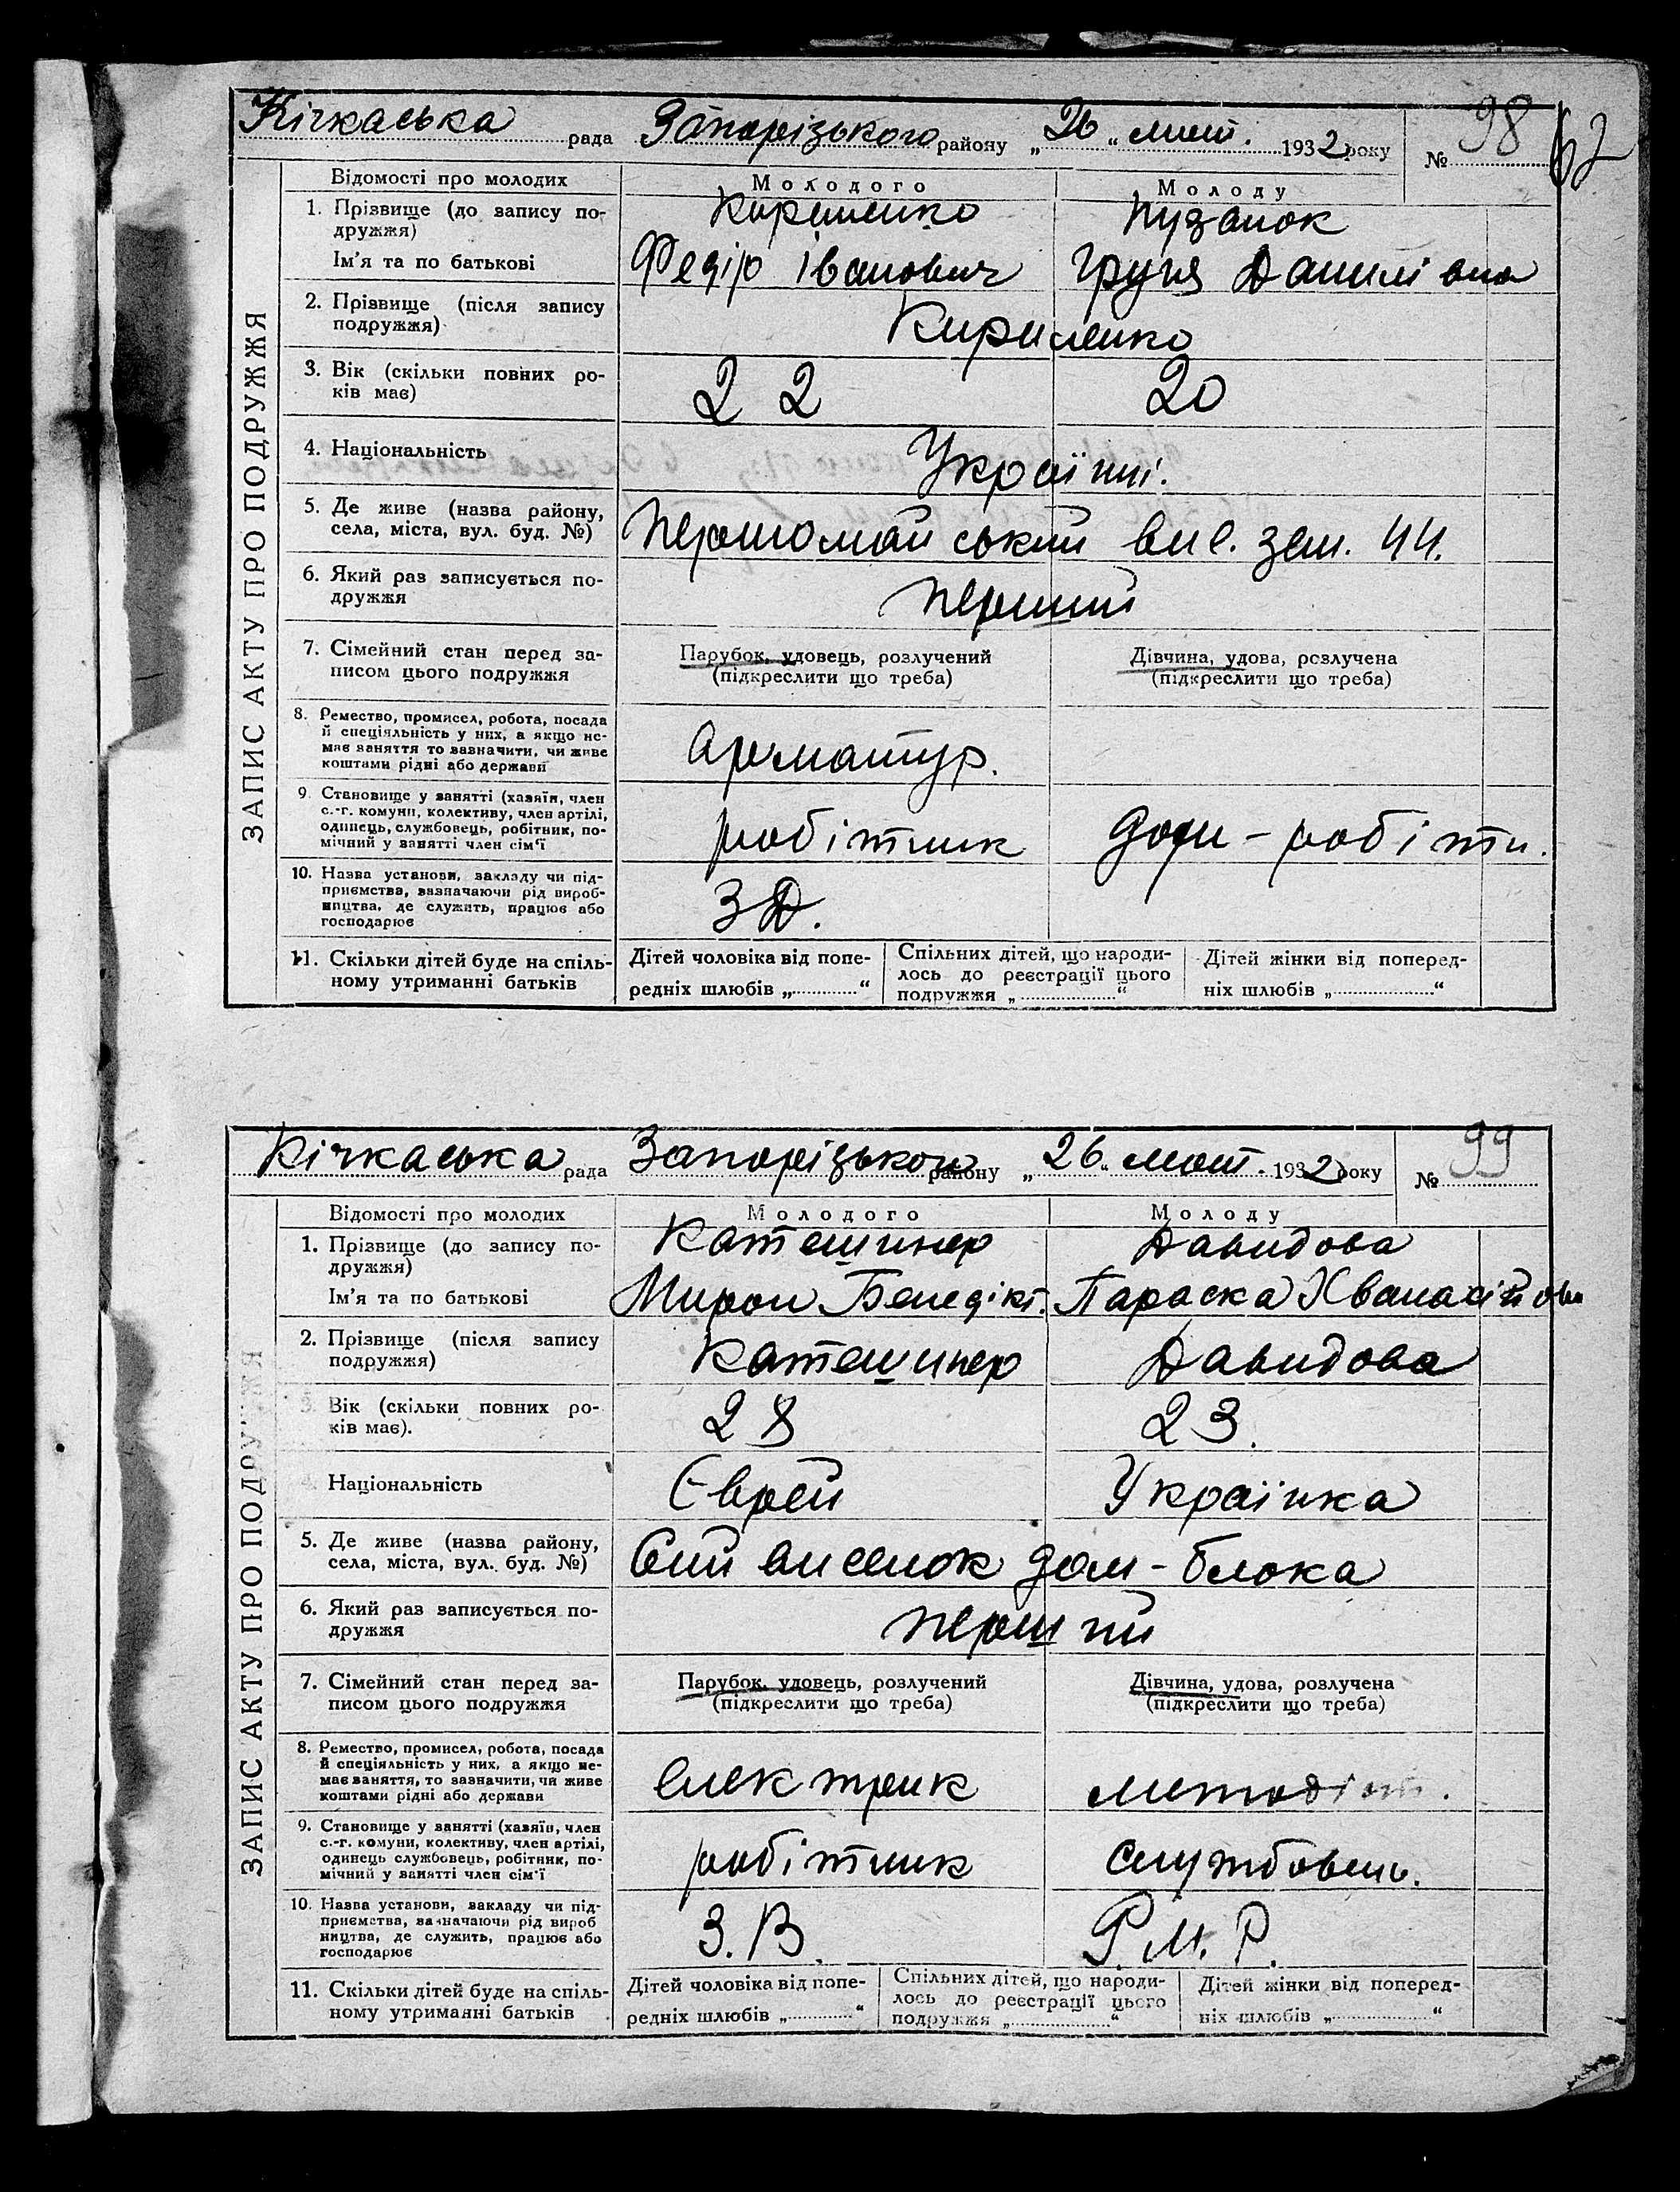 Кічкаська рада Запорізького району „26" лют. 1932 року № 98
62
ЗАПИС АКТУ ПРО ПОДРУЖЖЯ
Відомості про молодих Молодого Молоду
1. Прізвище (до запису по- Кириленко Пузанок
дружжя)
Ім'я та по батькові Федір Іванович Груня Данилівна
2. Прізвище (після запису
подружжя) Кириленко
3. Вік (скільки повних ро- 22 20
ків має)
4. Національність Українці.
5. Де живе (назва району,
села, міста, вул. буд. №) Першомайський вис. зем. 44.
6. Який раз записується по-
дружжя перший
7. Сімейний стан перед за- Парубок, удовець, розлучений Дівчина, удова, розлучена
писом цього подружжя (підкреслити що треба) (підкреслити що треба)
8. Ремество, промисел, робота, посада
й спеціяльність у них, а якщо не-
має заняття то зазначити, чи живе
коштами рідні або держави Арматур.
9. Становище у занятті (хазяїн, член
с.-г. комуни, колективу, член артілі,
одинець, службовець, робітник, по-
мічний у занятті член сім'ї робітник дом-робітн.
10. Назва установи, закладу чи під-
приємства, зазначаючи рід вироб-
ництва, де служить, працює або
господарює З Д.
11. Скільки дітей буде на спіль- Дітей чоловіка від попе- Спільних дітей, що народи- Дітей жінки від поперед-
ному утриманні батьків редніх шлюбів „ " лось до реєстрації цього ніх шлюбів „ "
подружжя „ "
Кічкаська рада Запорізького району „26" лют. 1932 року № 99
ЗАПИС АКТУ ПРО ПОДРУЖЖЯ
Відомості про молодих Молодого Молоду
1. Прізвище (до запису по- Катешинер Давидова
дружжя)
Ім'я та по батькові Мирон Бенедікт. Параска Хванасійовн
2. Прізвище (після запису
подружжя) Катешинер Давидова
3. Вік (скільки повних ро- 28 23.
ків має).
4. Національність Єврей Українка
5. Де живе (назва району,
села, міста, вул. буд. №) 6ий виселок дом-блока
6. Який раз записується по-
дружжя перший
7. Сімейний стан перед за- Парубок, удовець, розлучений Дівчина, удова, розлучена
писом цього подружжя (підкреслити що треба) (підкреслити що треба)
8. Ремество, промисел, робота, посада
й спеціяльність у них, а якщо не-
має заняття, то зазначити, чи живе
коштами рідні або держави електрик методіст.
9. Становище у занятті (хазяїн, член
с.-г. комуни, колективу, член артілі,
одинець службовець, робітник, по-
мічний у занятті член сім'ї робітник службовець.
10. Назва установи, закладу чи під-
приємства, зазначаючи рід вироб
ництва, де служить, працює або
господарює З. В. Р. М. Р.
11. Скільки дітей буде на спіль- Дітей чоловіка від попе- Спільних дітей, що народи- Дітей жінки від поперед-
ному утриманні батьків редніх шлюбів „ " лось до реєстрації цього ніх шлюбів „ "
подружжя „ "